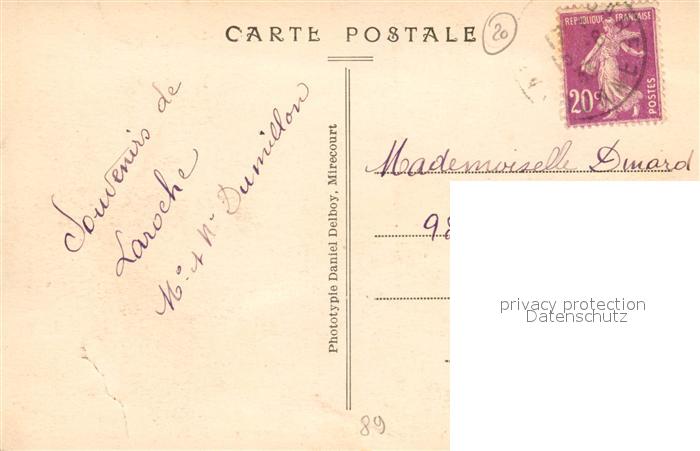 CARTE POSTALE
20
REPUBLIQUE FRANÇAISE
20c
POSTES
Souvenirs de
Laroche
Mr et Me Dumillon
Phototypie Daniel Delboy, Mirecourt
Mademoiselle Dinard
98
privacy protection
Datenschutz
89